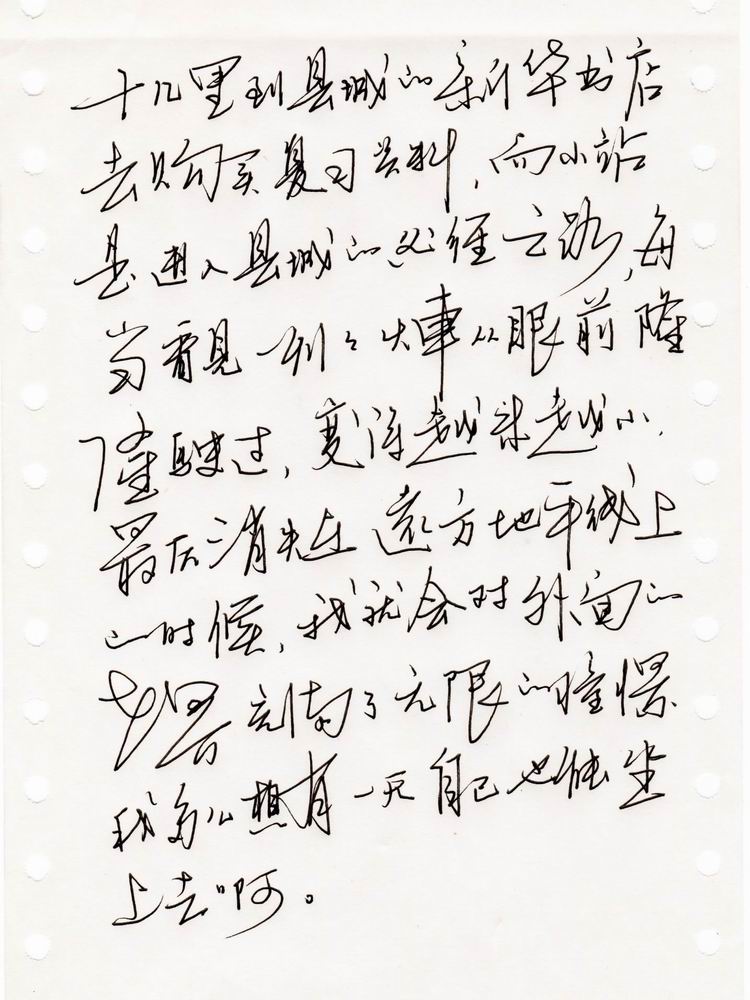 十几里到县城的新华书店
去购买复习资料，而小站
是进入县城的必经之路，每
当看見一列々火車从眼前隆
隆駛过，变得越来越小，
最后消失在遠方地平线上
的时候，我就会对外面的
世界充满了无限的憧憬
我多么想有一天自己也能坐
上去啊。